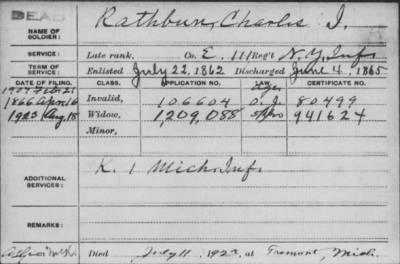 DEAD
NAME OF SOLDIER: Rathbun, Charles I.
SERVICE: Late rank, Co. E, 111 Reg't N.Y. Inf.
TERM OF SERVICE: Enlisted July 22, 1862 Discharged June 4, 1865
DATE OF FILING. CLASS. APPLICATION NO. CERTIFICATE NO.
1907 Feb 21
1866 Apr 16 Invalid, 106604 O.I. 80499
1923 Aug 18 Widow, 1,209,088 941624
Minor,
ADDITIONAL SERVICES: K. 1 Mich. Inf.
REMARKS:
Died July 11, 1923, at Fremont, Mich.